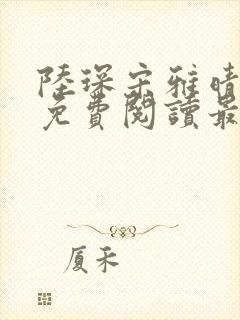 陸琛宋雅晴
免費閱讀最
厦禾